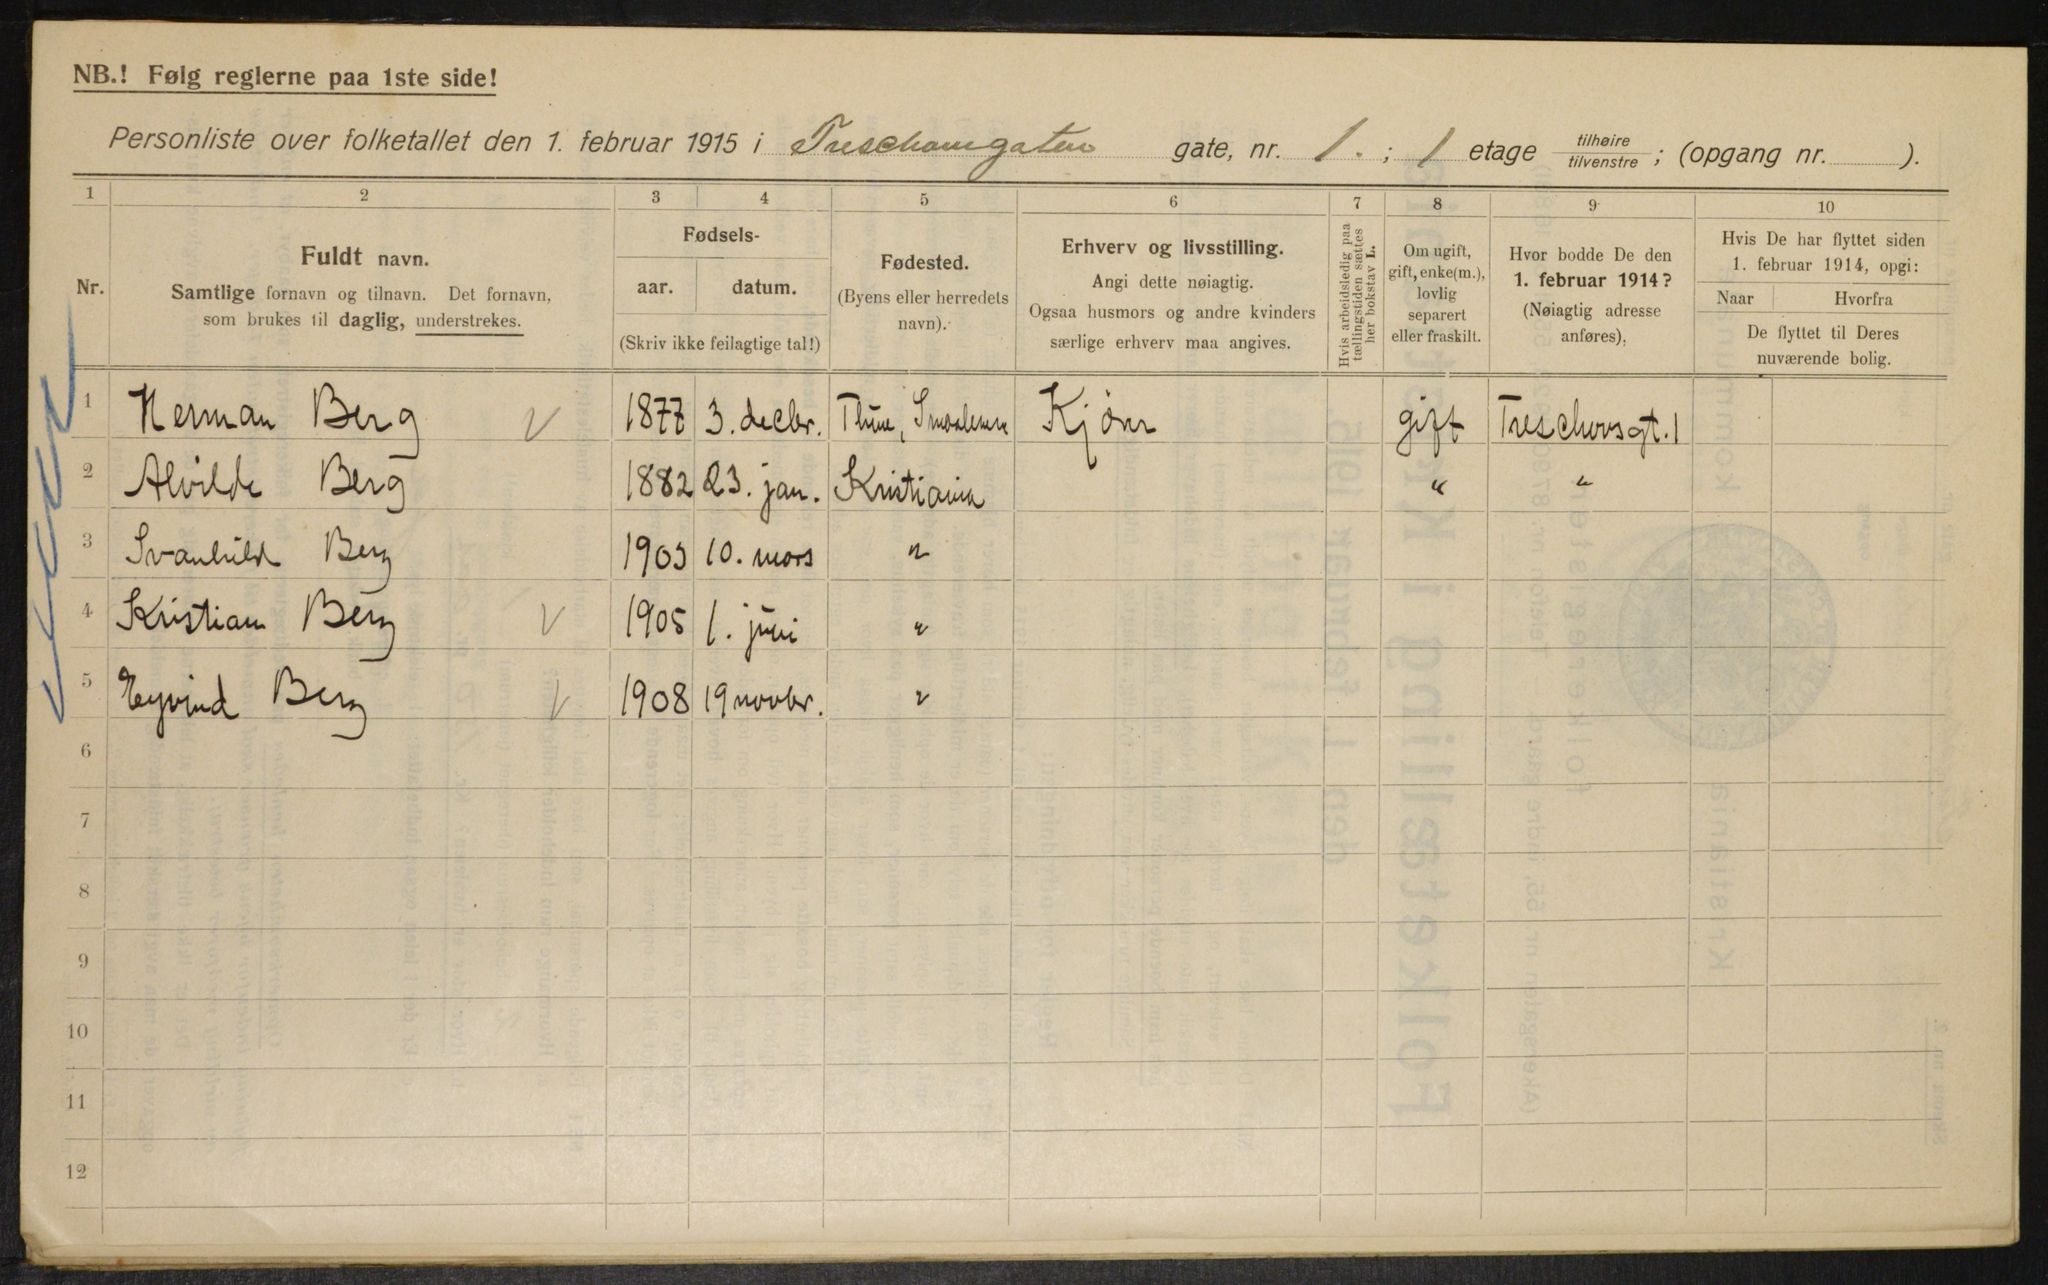 NB.! Følg reglerne paa 1ste side!
Personliste over folketallet den 1. februar 1915 i Treschowsgaten gate, nr. 1. ; 1 etage tilhøire / tilvenstre ; (opgang nr. ).
1 2 3 4 5 6 7 8 9 10
Nr.
Fuldt navn.
Samtlige fornavn og tilnavn. Det fornavn,
som brukes til daglig, understrekes.
Fødsels-
aar. datum.
(Skriv ikke feilagtige tal!)
Fødested.
(Byens eller herredets
navn).
Erhverv og livsstilling.
Angi dette nøiagtig.
Ogsaa husmors og andre kvinders
særlige erhverv maa angives.
Hvis arbeidsledig paa
tællingstiden sættes
her bokstav L.
Om ugift,
gift, enke(m.),
lovlig
separert
eller fraskilt.
Hvor bodde De den
1. februar 1914?
(Nøiagtig adresse
anføres).
Hvis De har flyttet siden
1. februar 1914, opgi:
Naar Hvorfra
De flyttet til Deres
nuværende bolig.
1 Herman Berg 1877 3. decbr. gift Treschowsgt. 1
2 Alvilde Berg 1882 23. jan. Kristiania " "
3 Svanhild Berg 1903 10. mars "
4 Kristian Berg 1905 1. juni "
5 Eyvind Berg 1908 19 novbr. "
6
7
8
9
10
11
12